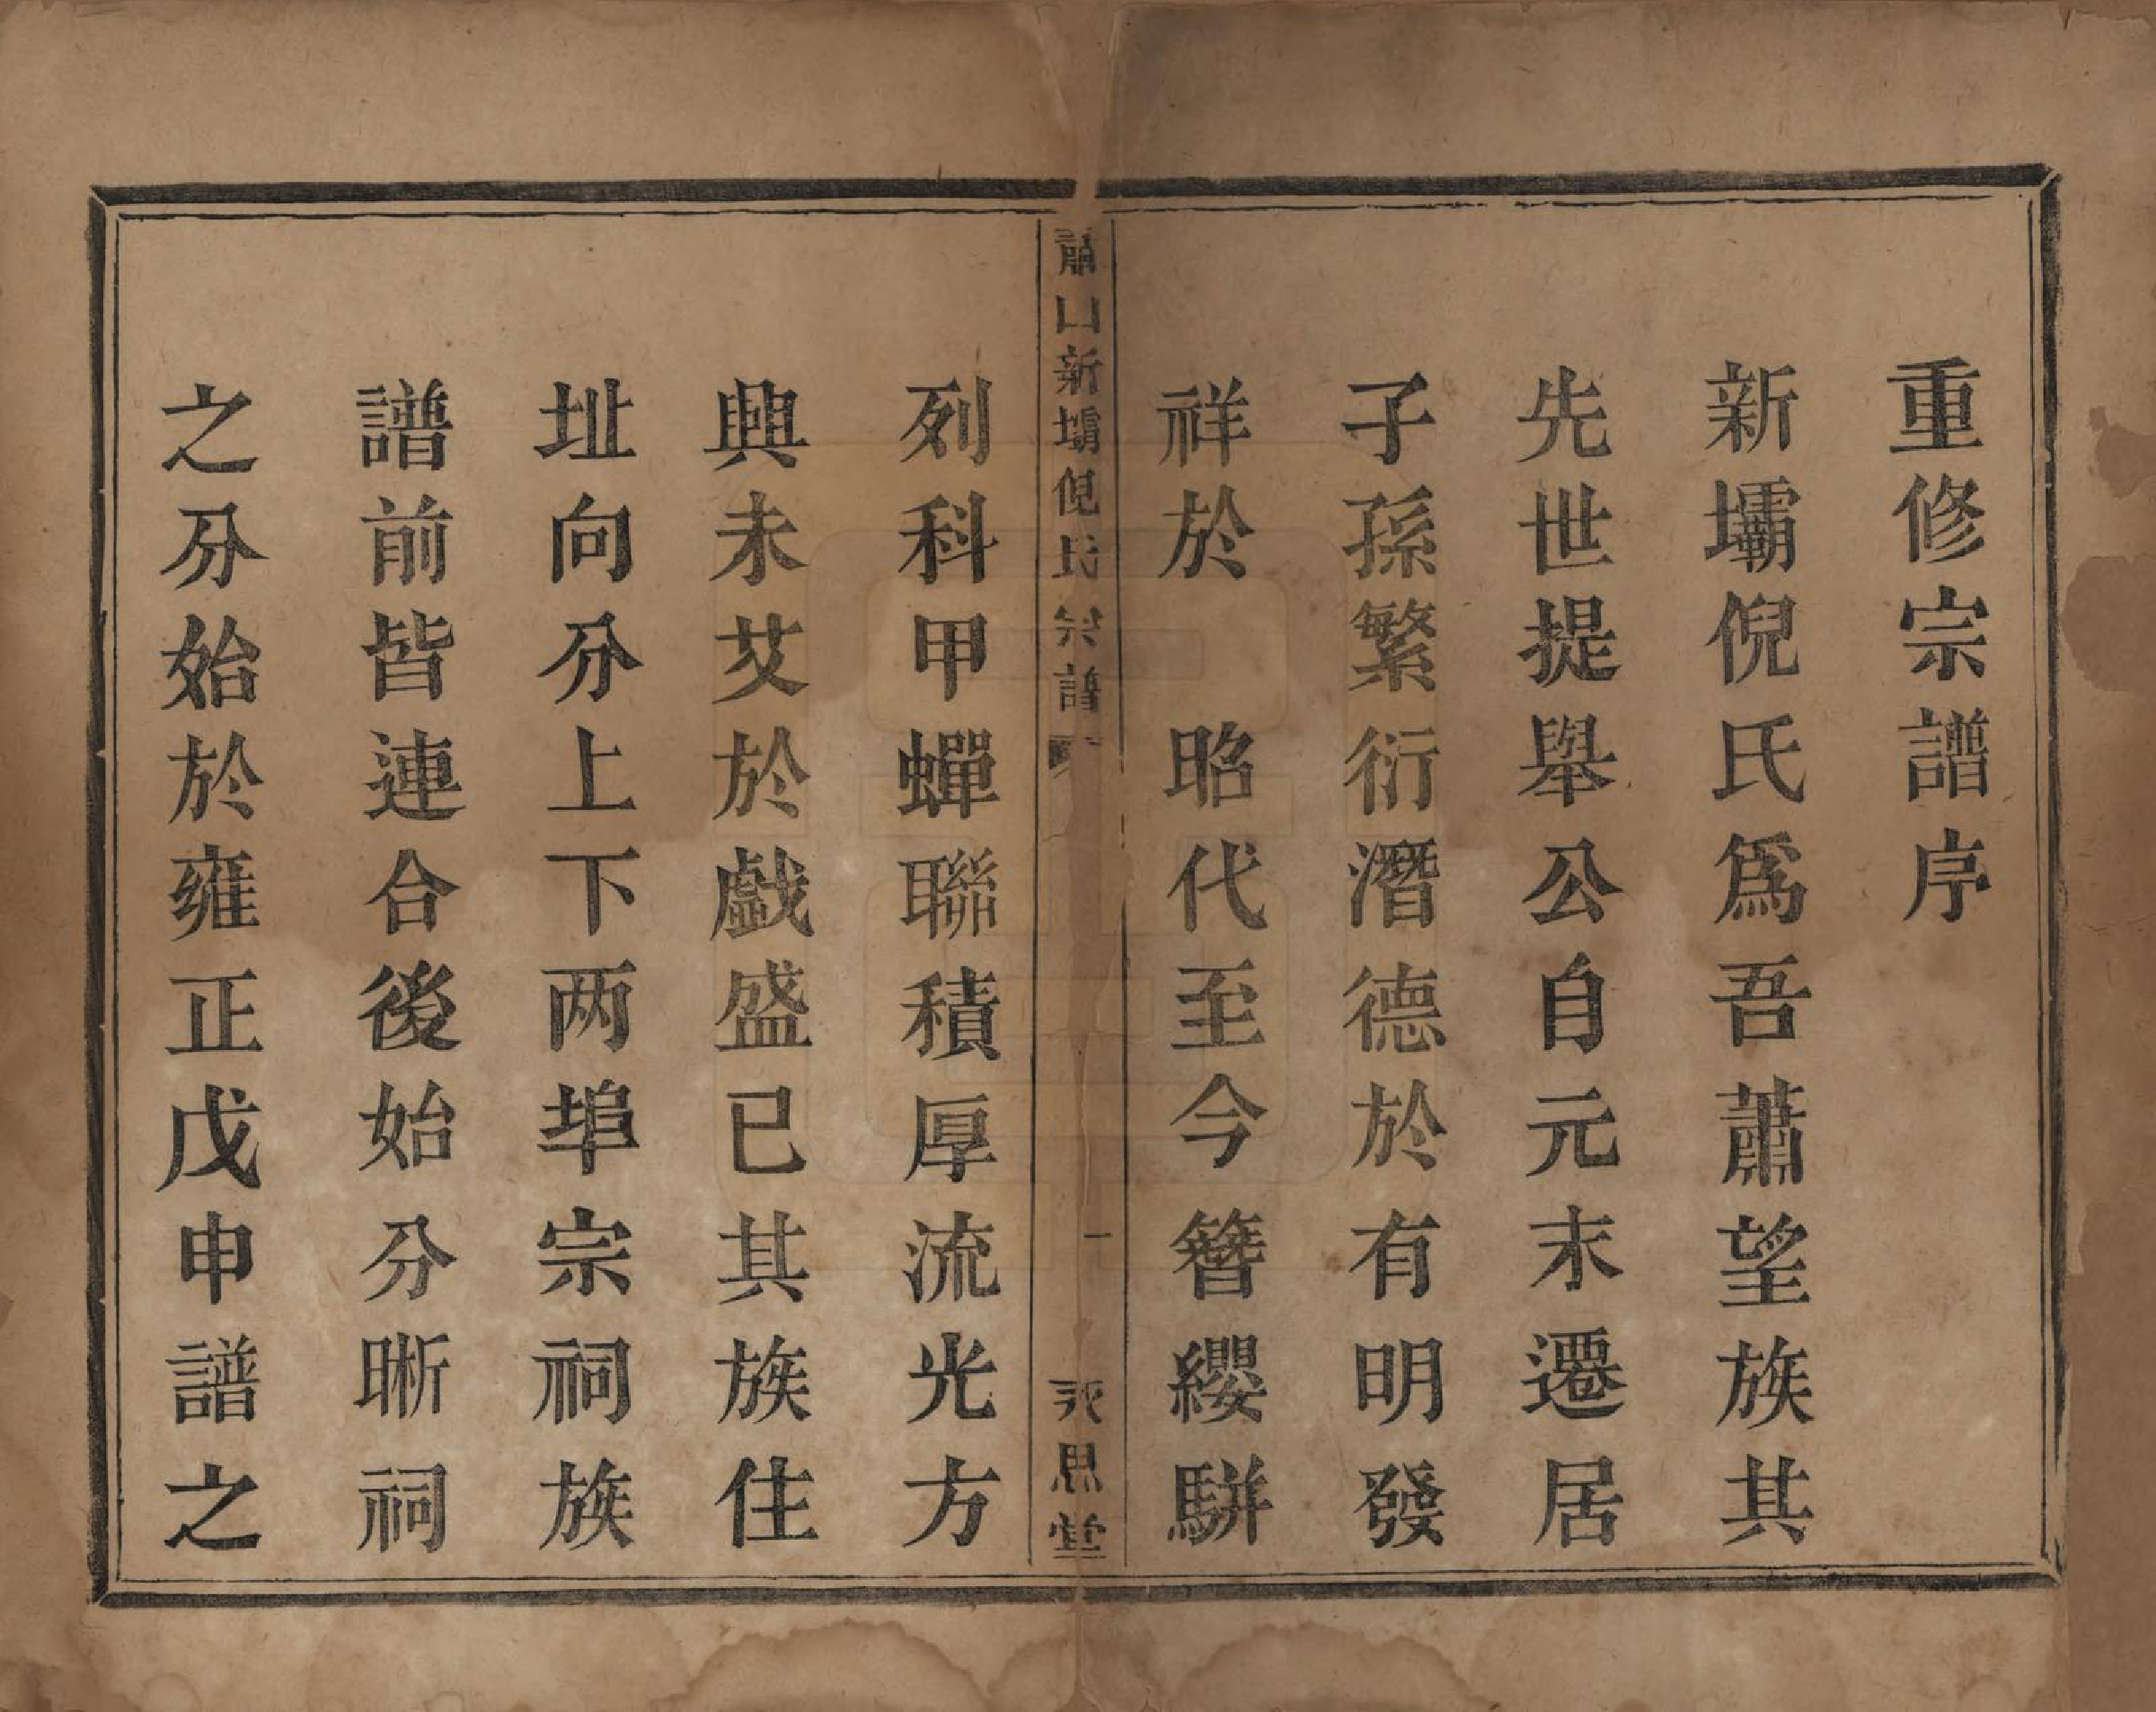 重修宗譜序
新壩倪氏爲吾蕭望族其
先世提舉公自元末遷居
子孫繁衍潛德於有明發
祥於　昭代至今簪纓駢
蕭山新壩倪氏宗譜
一
永思堂
列科甲蟬聯積厚流光方
興未艾於戲盛已其族住
址向分上下两埠宗祠族
譜前皆連合後始分晰祠
之分始於雍正戊申譜之